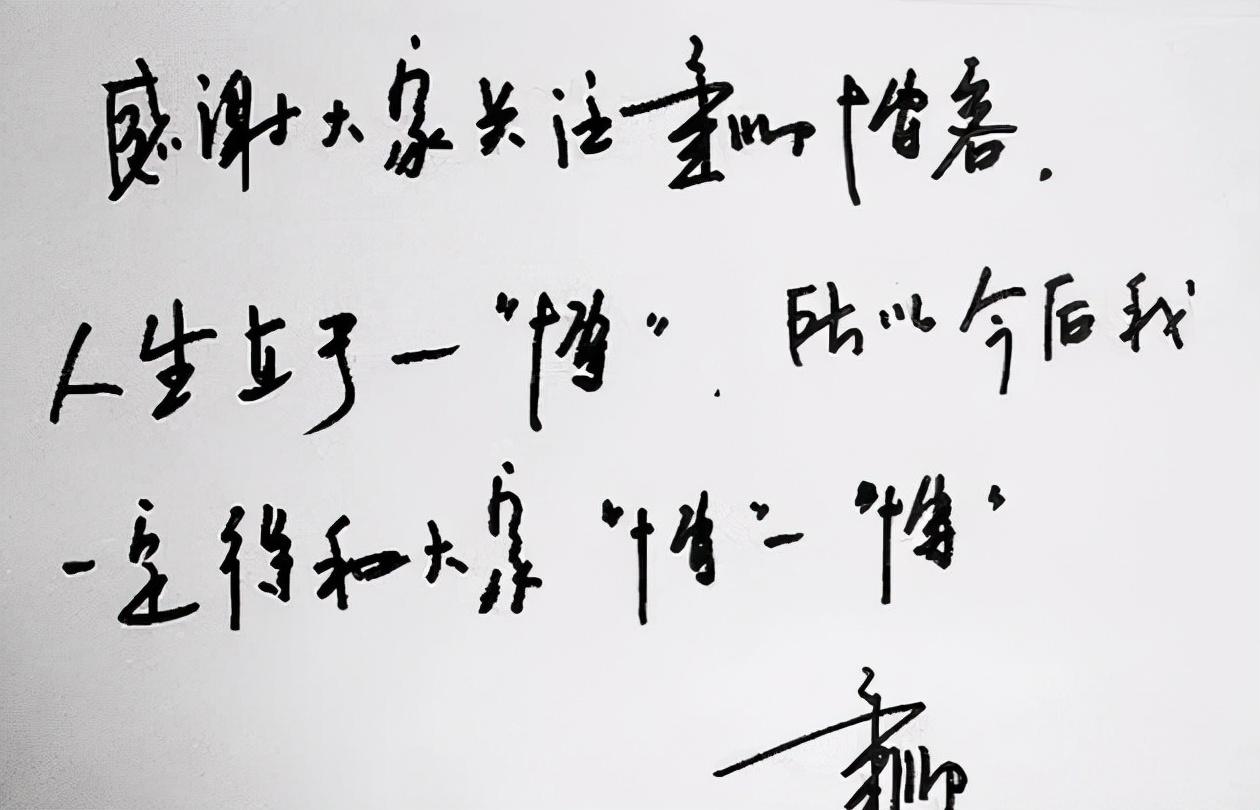 感谢大家关注董卿博客.
人生在于一“博”. 所以今后我
一定得和大家“博”一“博”
董卿